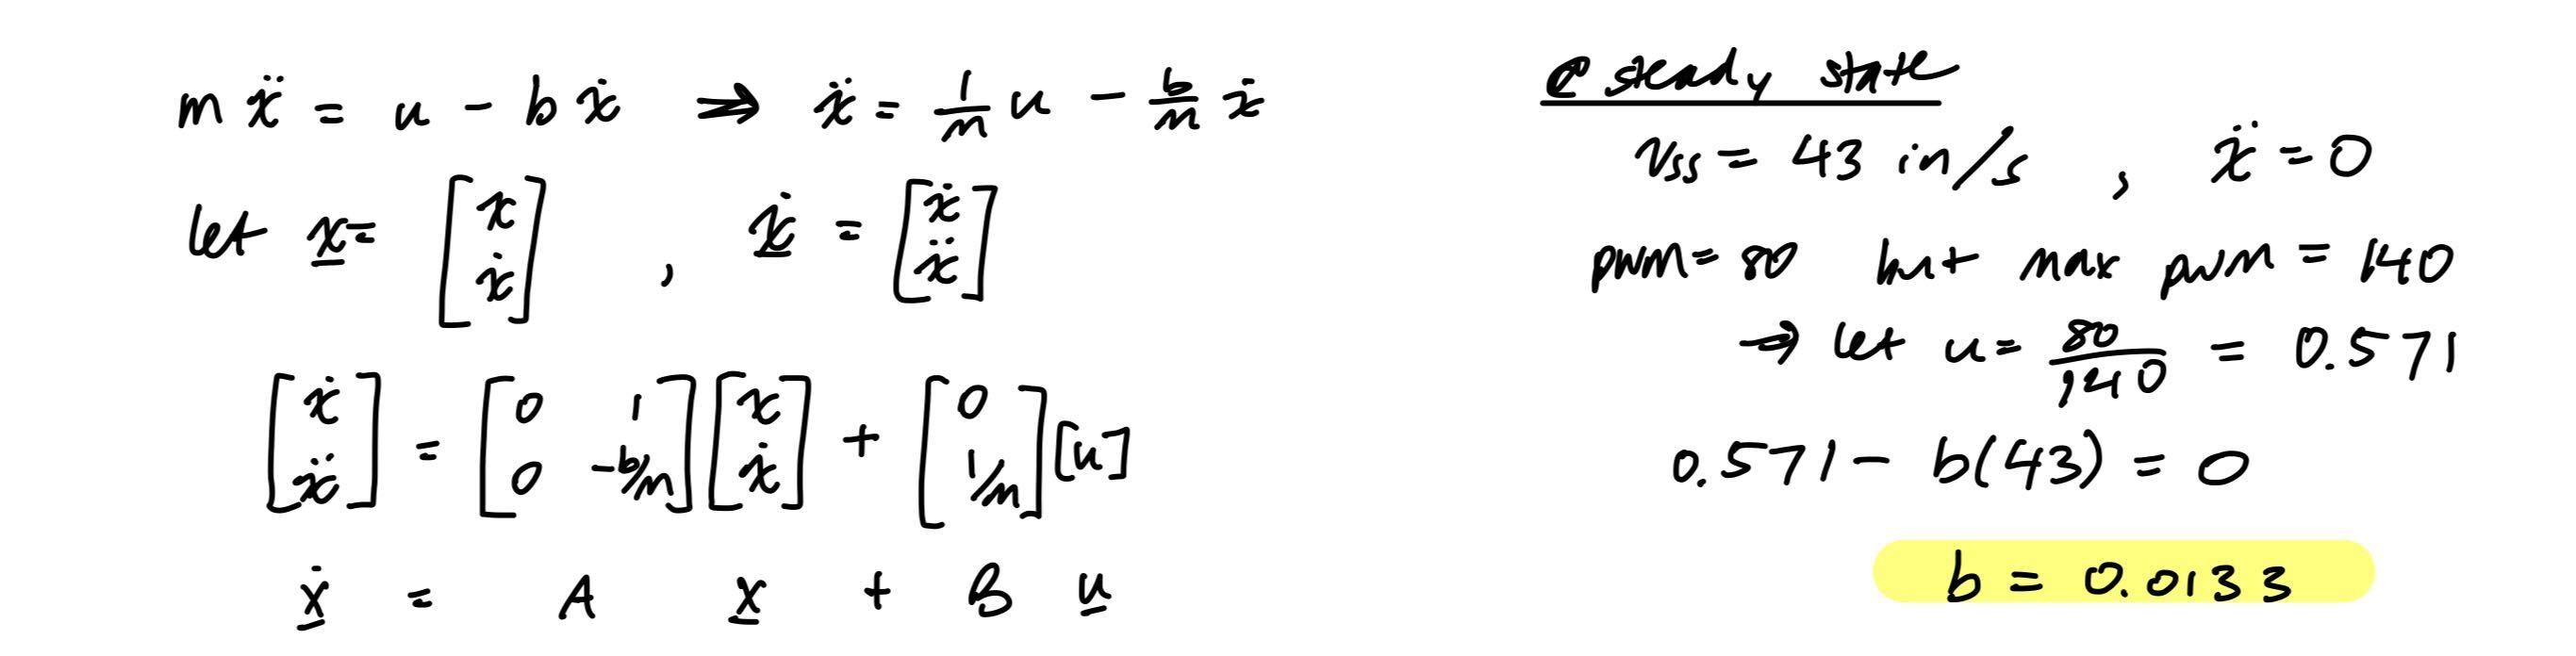 mẍ = u - bẋ ⇒ ẍ = 1/m u - b/m ẋ
let x̲ = [x ẋ] , ẋ̲ = [ẋ ẍ]
[ẋ ẍ] = [0 1; 0 -b/m] [x ẋ] + [0 1/m] [u]
ẋ̲ = A x̲ + B u̲
@ steady state
vss = 43 in/s , ẍ = 0
pwm = 80 but max pwm = 140
⇒ let u = 80/140 = 0.571
0.571 - b(43) = 0
b = 0.0133